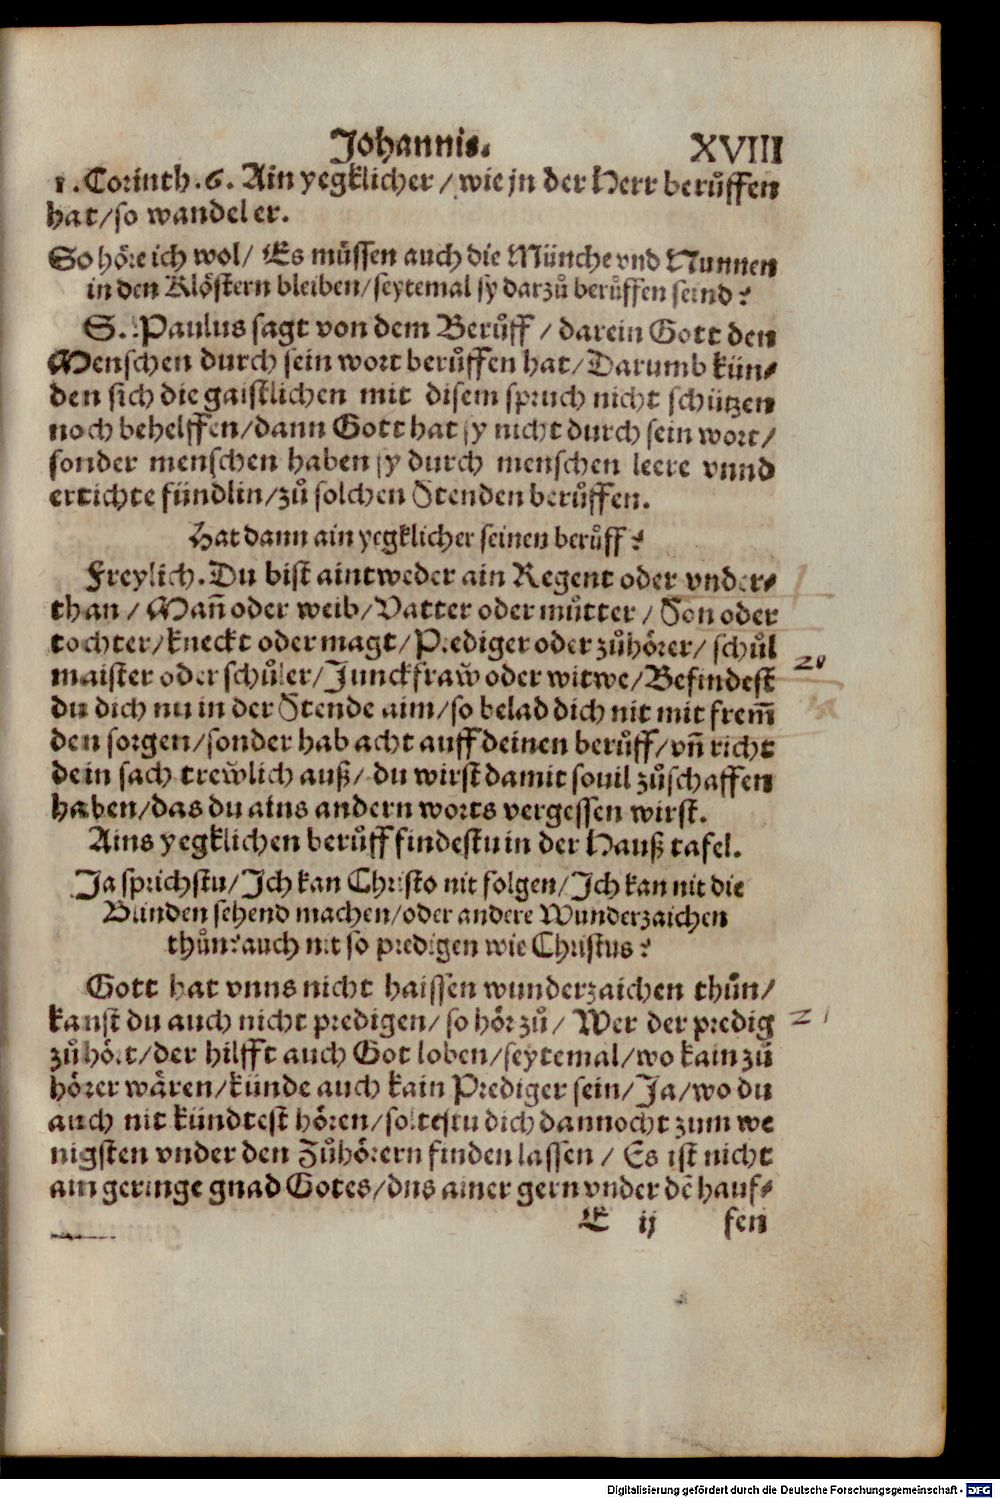 Johannis. XVIII
1. Corinth. 6. Ain yegklicher / wie jn der Herr berůffen
hat / so wandel er.
So höre ich wol / Es müssen auch die Münche vnd Nunnen
in den Klöstern bleiben / seytemal sy darzů berůffen seind?
S. Paulus sagt von dem Berůff / darein Gott den
Menschen durch sein wort berůffen hat / Darumb kün-
den sich die gaistlichen mit disem spruch nicht schützen
noch behelffen / dann Gott hat sy nicht durch sein wort /
sonder menschen haben sy durch menschen leere vnnd
ertichte fündlin / zů solchen Stenden berůffen.
Hat dann ain yegklicher seinen berůff?
Freylich. Du bist aintweder ain Regent oder vnder-
than / Mañ oder weib / Vatter oder můtter / Son oder
tochter / kneckt oder magt / Prediger oder zůhörer / schůl
maister oder schůler / Junckfraw̆ oder witwe / Befindest
du dich nu in der Stende aim / so belad dich nit mit frem̄
den sorgen / sonder hab acht auff deinen berůff / vñ richt
dein sach trew̆lich auß / du wirst damit souil zůschaffen
haben / das du ains andern worts vergessen wirst.
Ains yegklichen berůff findestu in der Hauß tafel.
Ja sprichstu / Ich kan Christo nit folgen / Ich kan nit die
Blinden sehend machen / oder andere Wunderzaichen
thůn? auch nit so predigen wie Christus?
Gott hat vnns nicht haissen wunderzaichen thůn /
kanst du auch nicht predigen / so hör zů / Wer der predig
zůhört / der hilfft auch Got loben / seytemal / wo kain zů
hörer wären / künde auch kain Prediger sein / Ja / wo du
auch nit kündtest hören / soltestu dich dannocht zum we
nigsten vnder den Zůhörern finden lassen / Es ist nicht
ain geringe gnad Gotes / dns ainer gern vnder dē hauf-
E ij fen
20
21
Digitalisierung gefördert durch die Deutsche Forschungsgemeinschaft - DFG